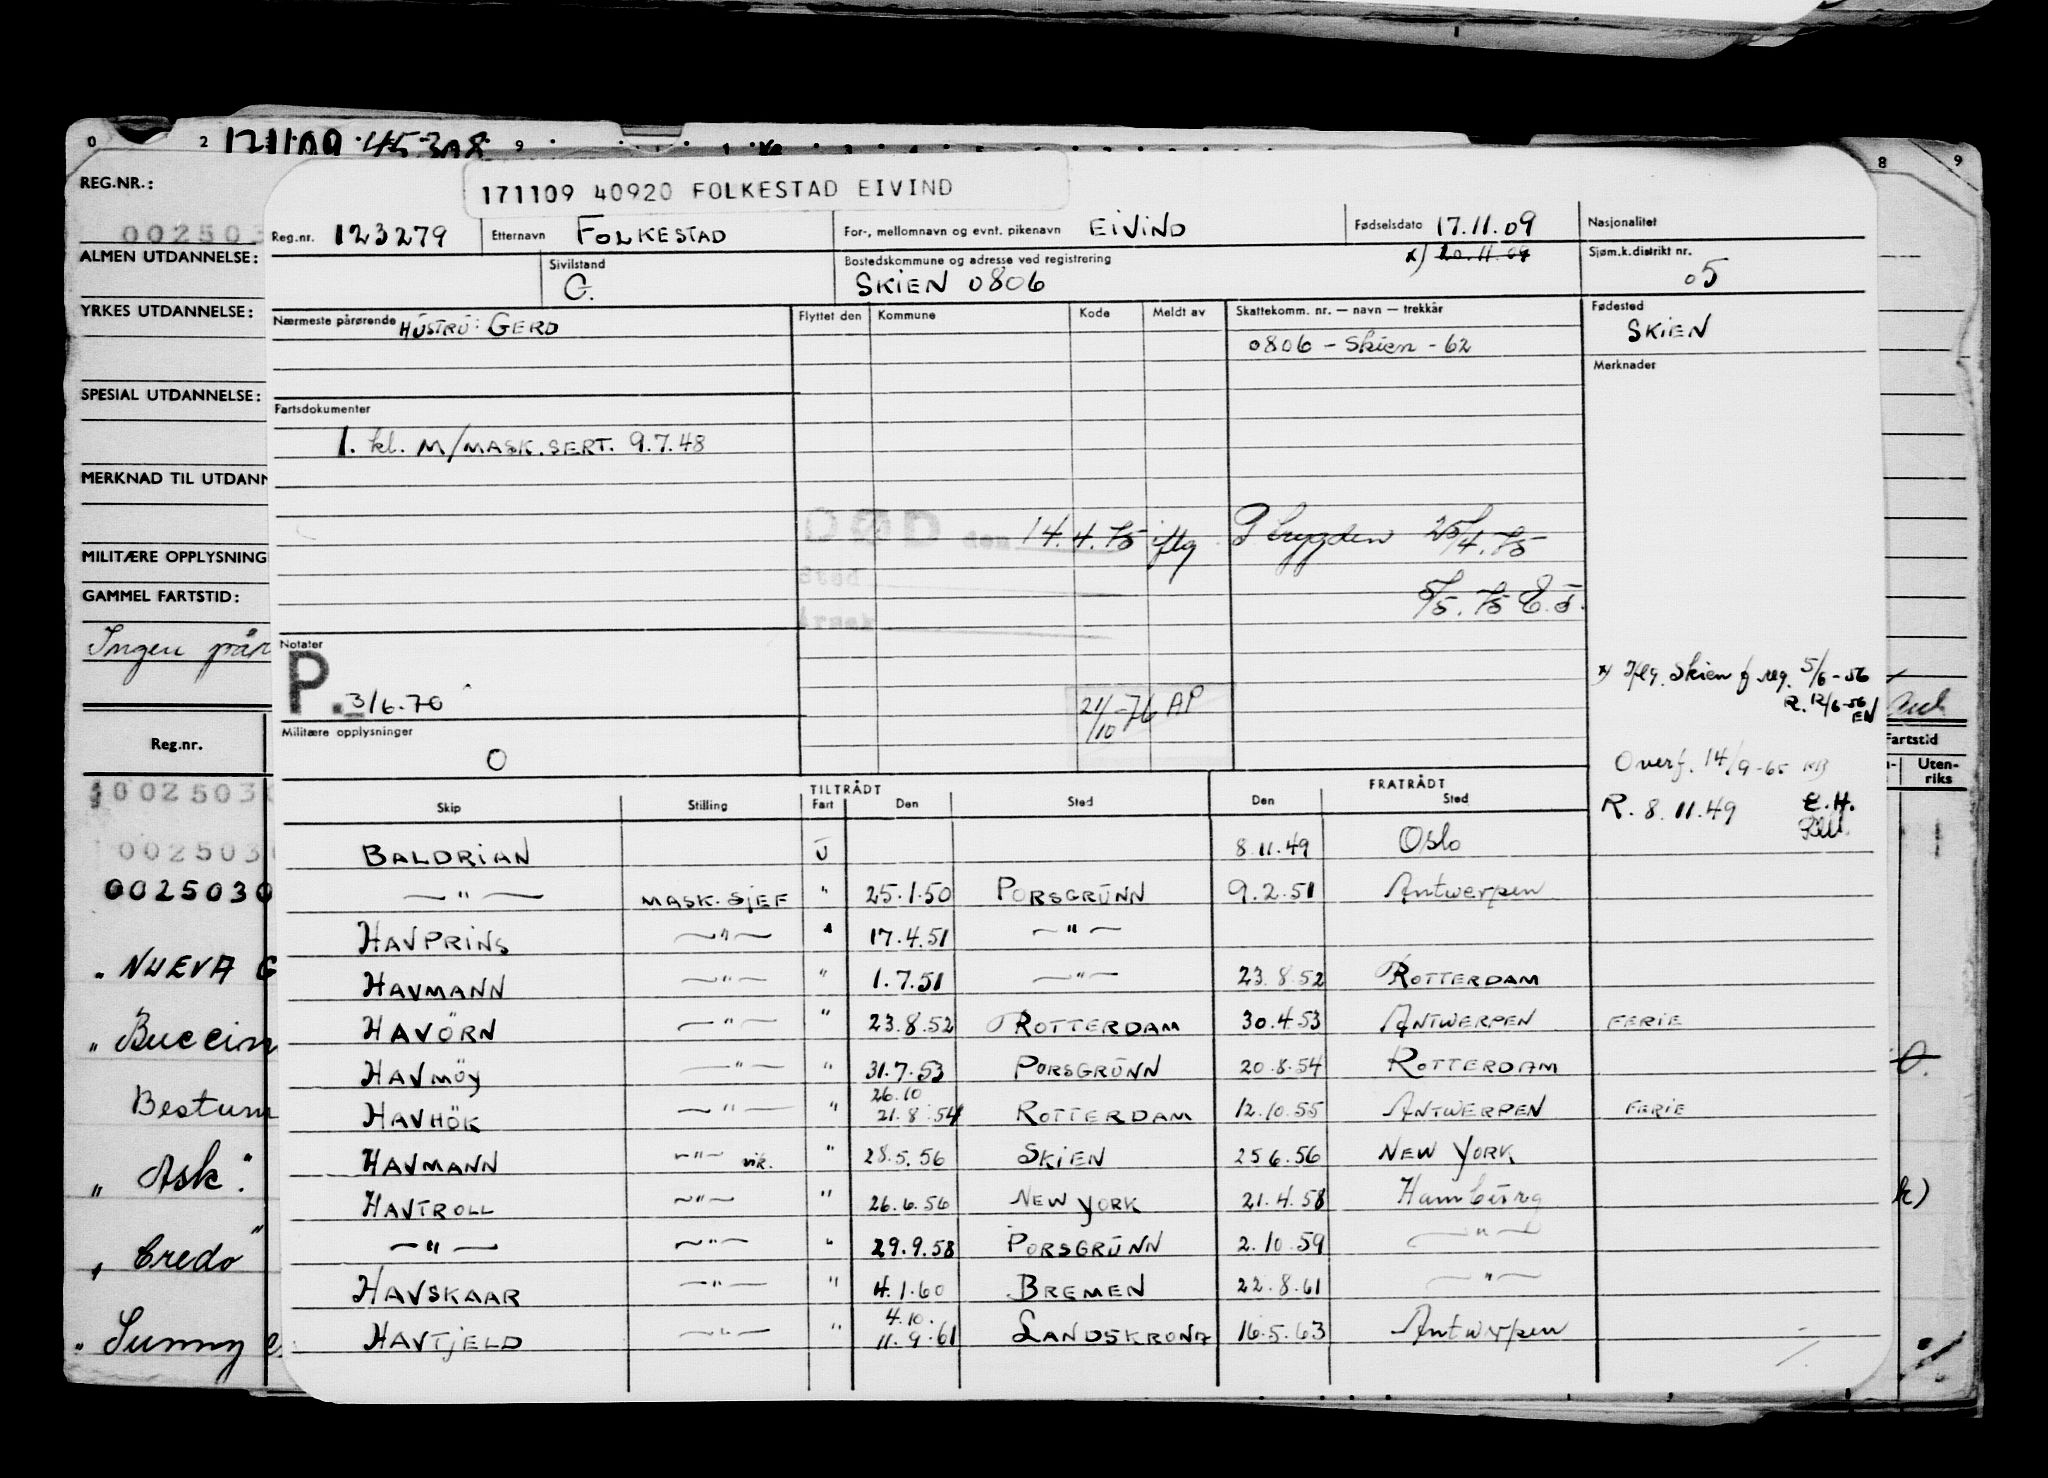 171109 45308
171109 40920 FOLKESTAD EIVIND
Reg.nr. 123279 Etternavn FOLKESTAD For-, mellomnavn og evnt. pikenavn EIVIND Fødselsdato 17.11.09 Nasjonalitet
x) 20.11.09
Sivilstand G. Bostedskommune og adresse ved registrering SKIEN 0806 Sjøm.k.distrikt nr. 05
Nærmeste pårørende HUSTRU: GERD Flyttet den Kommune Kode Meldt av Skattekomm. nr. — navn — trekkår Fødested SKIEN
0806 - Skien - 62
Merknader
Fartsdokumenter
1. kl. M/MASK.SERT. 9.7.48
DØD den 14.4.75 iflg P trygden 25/4.75
Sted
Årsak
5/5.75 E.J.
Notater
P. 3/6.70
21/10-76 AP
Militære opplysninger
0
x) Iflg. Skien f.reg. 5/6-56
R. 12/6-56
EN
Overf. 14/9-65
R. 8.11.49 E.H.
TILTRÅDT FRATRÅDT
Skip Stilling Fart Den Sted Den Sted
BALDRIAN U 8.11.49 Oslo
—"— MASK.SJEF " 25.1.50 PORSGRUNN 9.2.51 Antwerpen
HAVPRINS —"— " 17.4.51 —"—
HAVMANN —"— " 1.7.51 —"— 23.8.52 ROTTERDAM
HAVÖRN —"— " 23.8.52 ROTTERDAM 30.4.53 ANTWERPEN FERIE
HAVMÖY —"— " 31.7.53 PORSGRUNN 20.8.54 ROTTERDAM
26.10
HAVHÖK —"— " 21.8.54 ROTTERDAM 12.10.55 ANTWERPEN FERIE
HAVMANN —"— vik. " 28.5.56 SKIEN 25.6.56 NEW YORK
HAVTROLL —"— " 26.6.56 NEW YORK 21.4.58 Hamburg
—"— —"— " 29.9.58 PORSGRUNN 2.10.59 —"—
HAVSKAAR —"— " 4.1.60 BREMEN 22.8.61 —"—
4.10.
HAVTJELD —"— " 11.9.61 LANDSKRONA 16.5.63 Antwerpen
REG.NR.:
002503
ALMEN UTDANNELSE:
YRKES UTDANNELSE:
SPESIAL UTDANNELSE:
MERKNAD TIL UTDANN
MILITÆRE OPPLYSNING
GAMMEL FARTSTID:
Ingen pår
Reg.nr.
Fartstid
Uten-
riks
002503
002503
0025030
" NUEVA G
" Buccin
Bestum
" Ask"
" Credo"
" Sunny